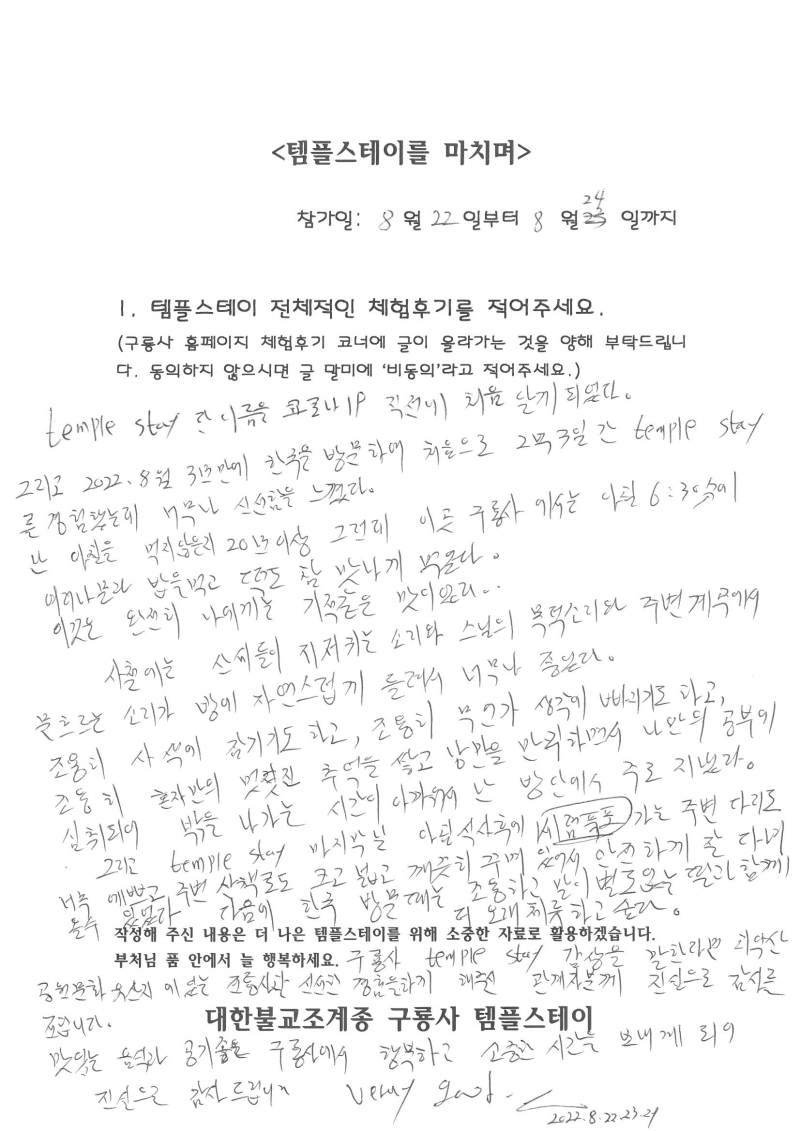 <템플스테이를 마치며>
참가일: 8 월 22 일부터 8 월 24 일까지
1. 템플스테이 전체적인 체험후기를 적어주세요.
(구룡사 홈페이지 체험후기 코너에 글이 올라가는 것을 양해 부탁드립니
다. 동의하지 않으시면 글 말미에 '비동의'라고 적어주세요.)
temple stay 란 이름을 코로나19 직전에 처음 알게 되었다.
그리고 2022. 8월 3년만에 한국을 방문하여 처음으로 2박3일간 temple stay
를 경험했는데 너무나 신선함을 느꼈다.
난 아침을 먹지않은지 20년이상 그런데 이곳 구룡사에서는 아침 6:30분에
일어나 밥을먹고 떡도 참 맛나게 먹었다.
이것은 완전히 나에게는 기적같은 맛이었다..
사찰에는 산새들이 지저귀는 소리와 스님의 목탁소리와 주변계곡에서
물흐르는 소리가 방에 자연스럽게 들려서 너무나 좋았다.
조용히 사색에 잠기기도 하고, 조용히 무언가 생각에 빠지기도 하고,
조용히 혼자만의 멋진 추억을 쌓고 낭만을 만끽하면서 나만의 공부에
심취되어 밖을 나가는 시간이 아까워서 난 방안에서 주로 지냈다.
그리고 temple stay 마지막날 아침식사후에 세렴폭포 가는 주변 다리도
너무 예쁘고 주변 산책로도 크고 넓고 깨끗히 꾸며 있어서 안전하게 잘 다녀
올수 있었다 다음에 한국 방문때는 조용하고 말이 별로없는 딸과 함께
더 오래 체류하고 싶다.
작성해 주신 내용은 더 나은 템플스테이를 위해 소중한 자료로 활용하겠습니다.
부처님 품 안에서 늘 행복하세요.
구룡사 temple stay 감상을 말하라면 치악산
공원문화 유산지에 있는 구룡사란 신선한 경험을하게 해주신 관계자분께 진심으로 감사를
드립니다.
대한불교조계종 구룡사 템플스테이
맛있는 음식과 공기좋은 구룡사에서 행복하고 소중한 시간을 보내게 되어
진심으로 감사드립니다 very good.
2022.8.22.23.24